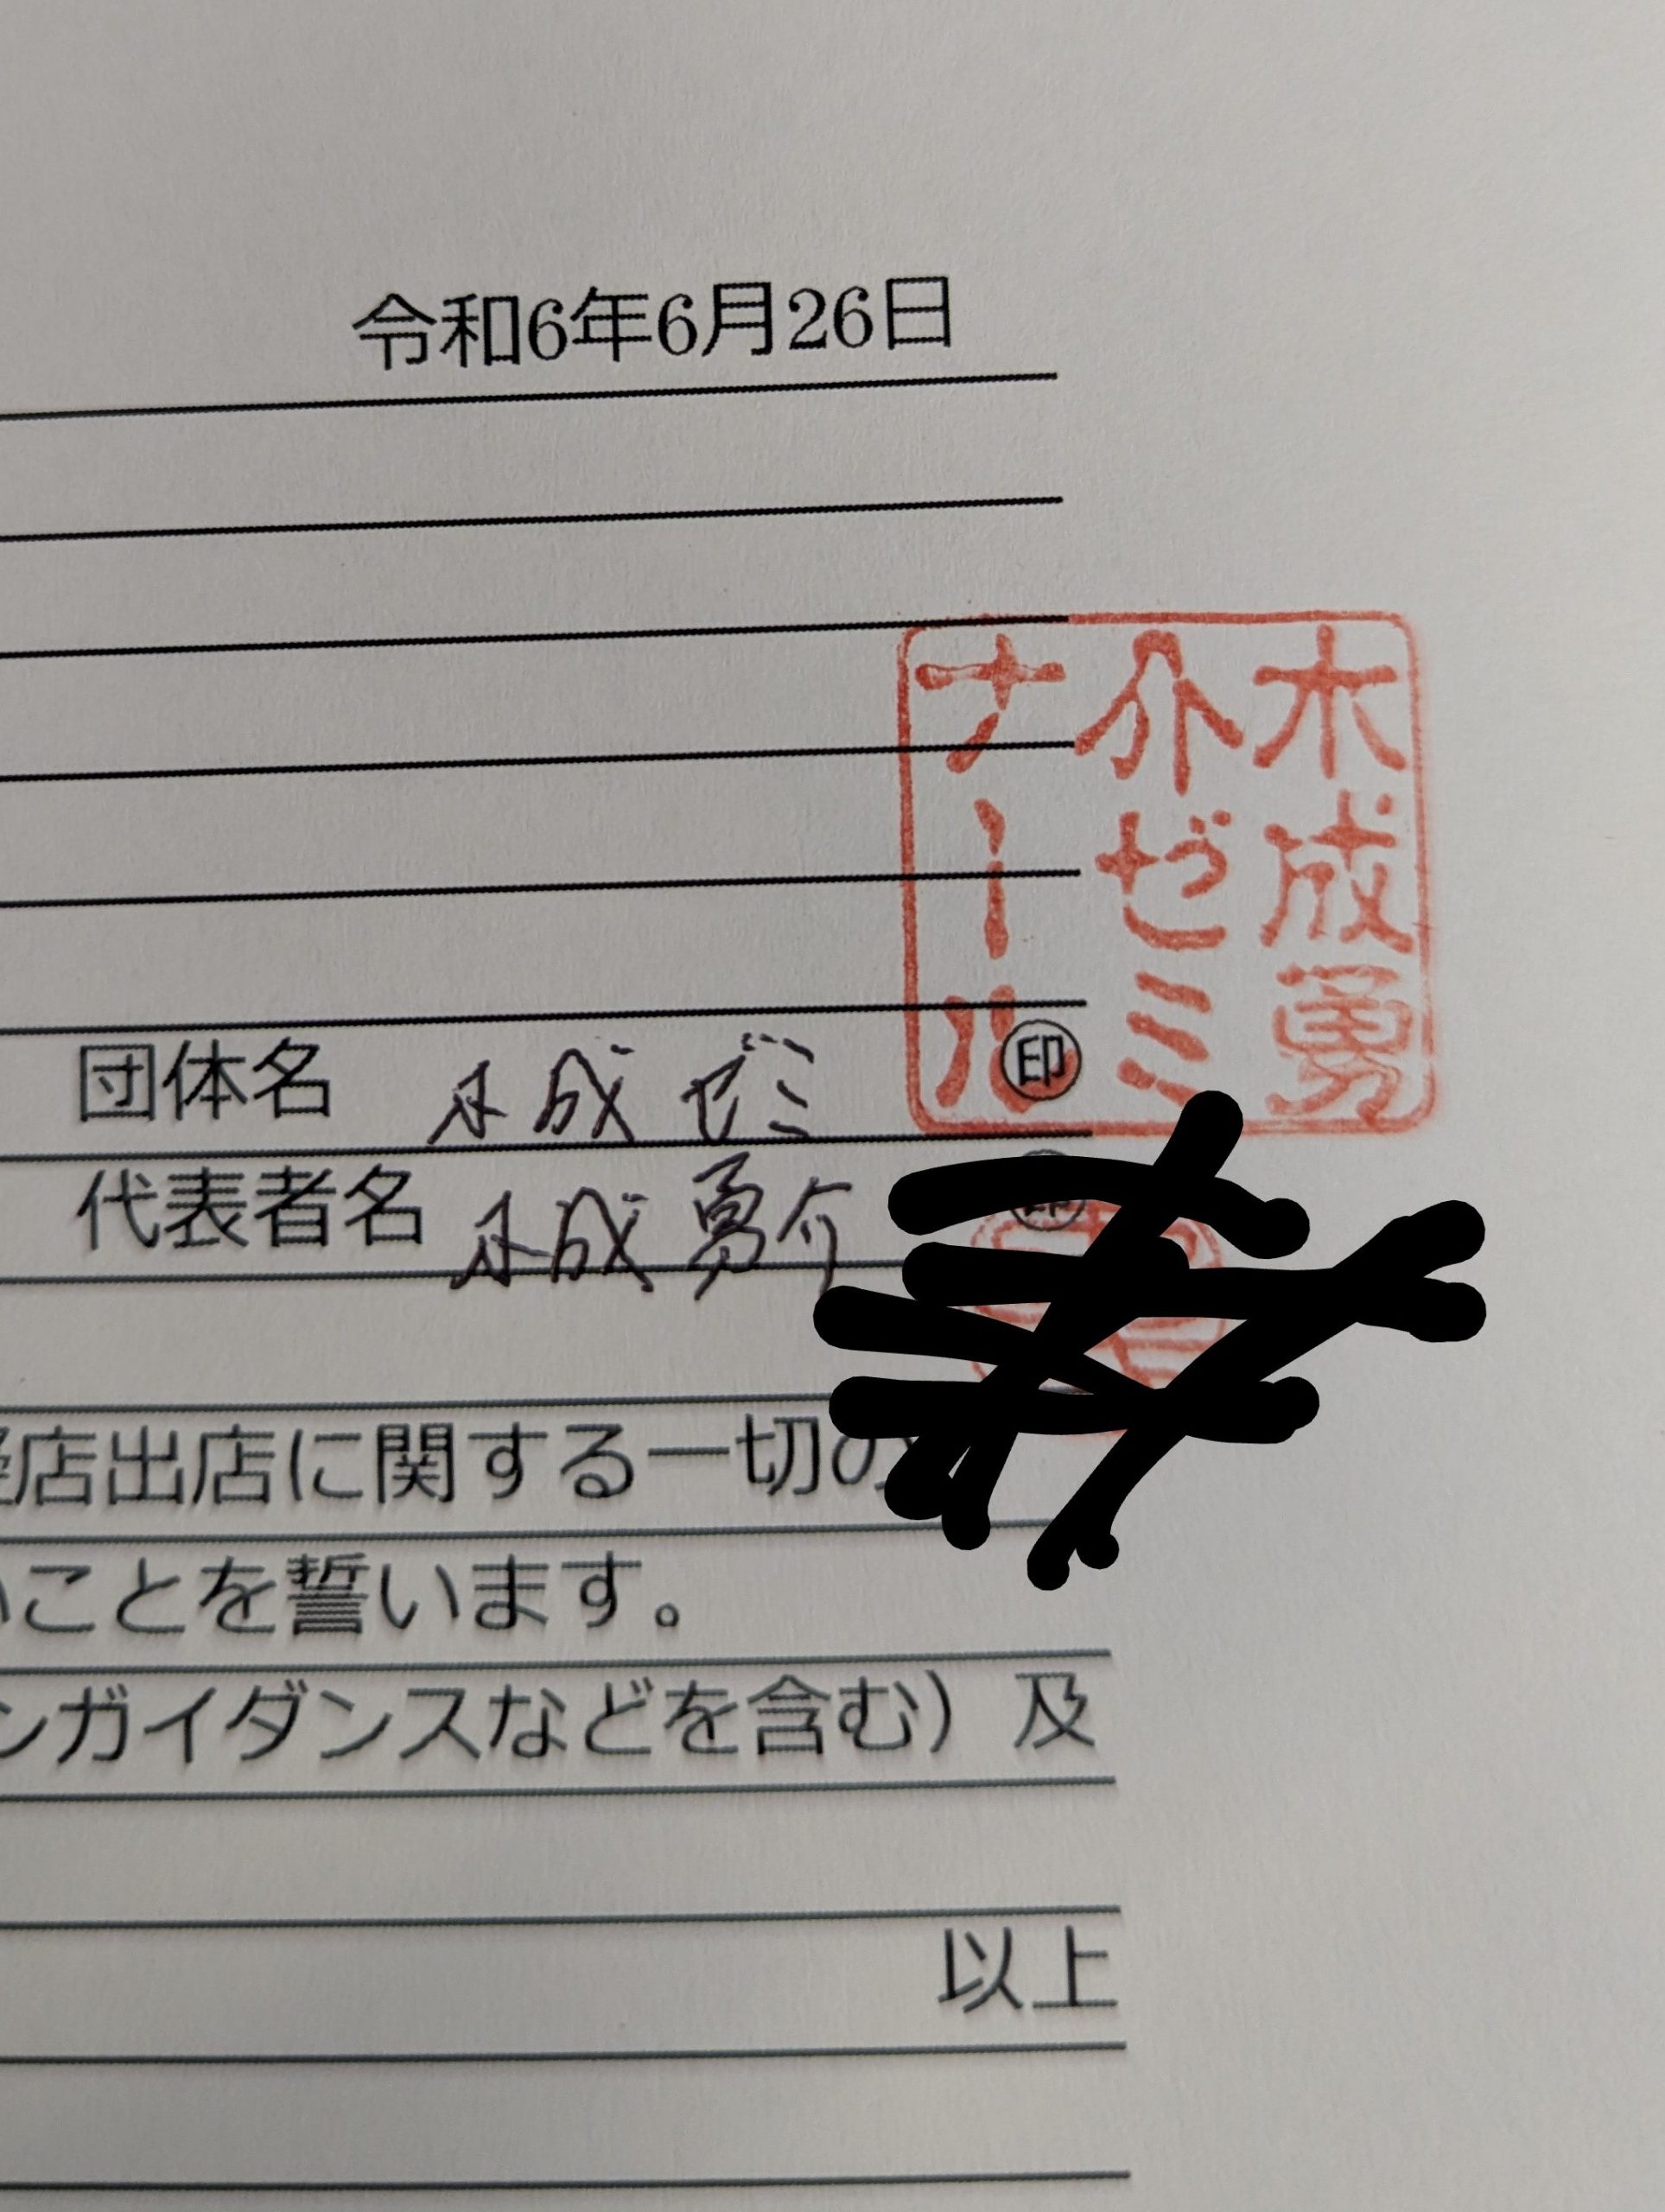 令和6年6月26日
木成勇
介ゼミ
ナール
団体名 木成ゼミ 印
代表者名 木成勇介 印
店出店に関する一切の
ことを誓います。
ンガイダンスなどを含む）及
以上